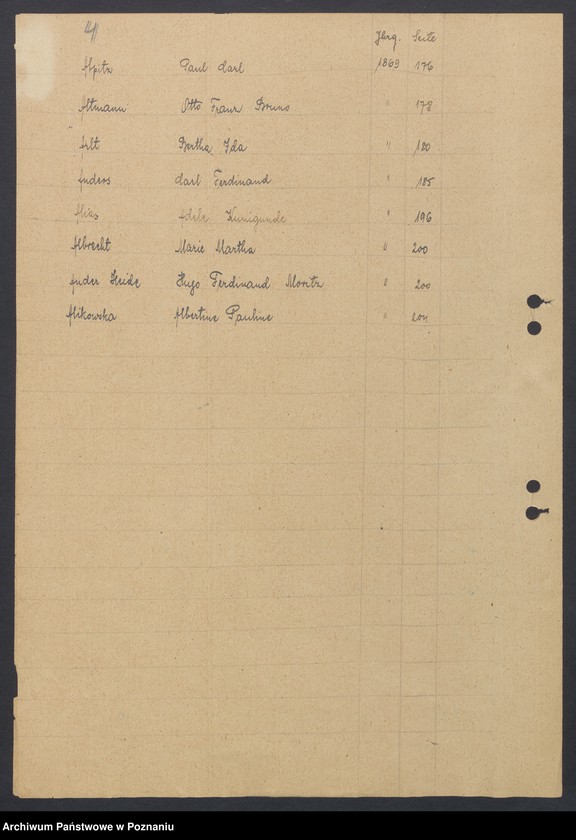 Jhrg. Seite
Apitz Paul Carl 1869 176
Altmann Otto Franz Bruno " 178
Arlt Bertha Ida " 180
Anders Carl Ferdinand " 185
Adele Kunigunde " 196
Albrecht Marie Martha " 200
Ander Heide Hugo Ferdinand Moritz " 200
Alikowska Albertine Pauline "
Archiwum Państwowe w Poznaniu